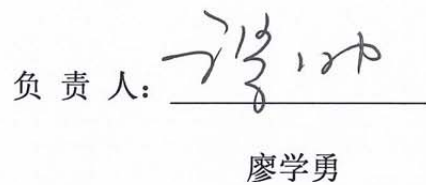 负 责 人：
廖学勇